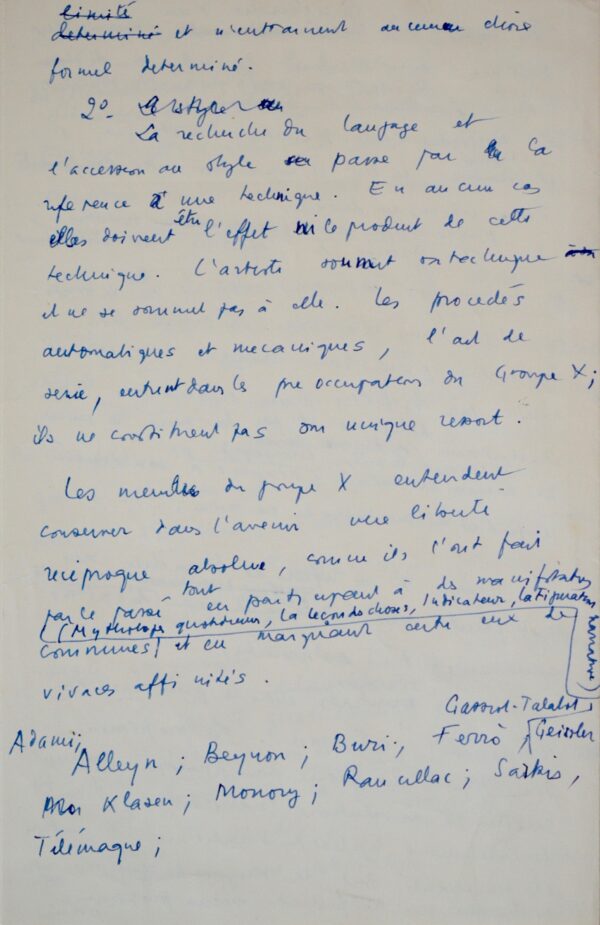 limité
determiné et n'entrainent aucun choix
formel determiné.
2o-
La recherche du langage et
l'accession au style passe par la
reference à une technique. En aucun cas
elles doivent être l'effet ni le produit de cette
technique. L'artiste soumet sa technique
il ne se soumet pas à elle. Les procedés
automatiques et mecaniques, l'art de
serie, entrent dans les preoccupations du Groupe X;
ils ne constituent pas son unique ressort.
Les membres du groupe X entendent
conserver dans l'avenir une liberté
réciproque absolue, comme ils l'ont fait
par le passé tout en participant à des manifestations
(Mythologies quotidiennes, la seconde chose, Indicateur, la Figuration narrative)
communes, et en marquant entre eux de
vivaces affinités.
Gassiot-Talabot,
Adami; Alleyn; Beynon; Buri; Ferró, Geissler
Klasen; Monory; Rancillac; Sarkis,
Télémaque;